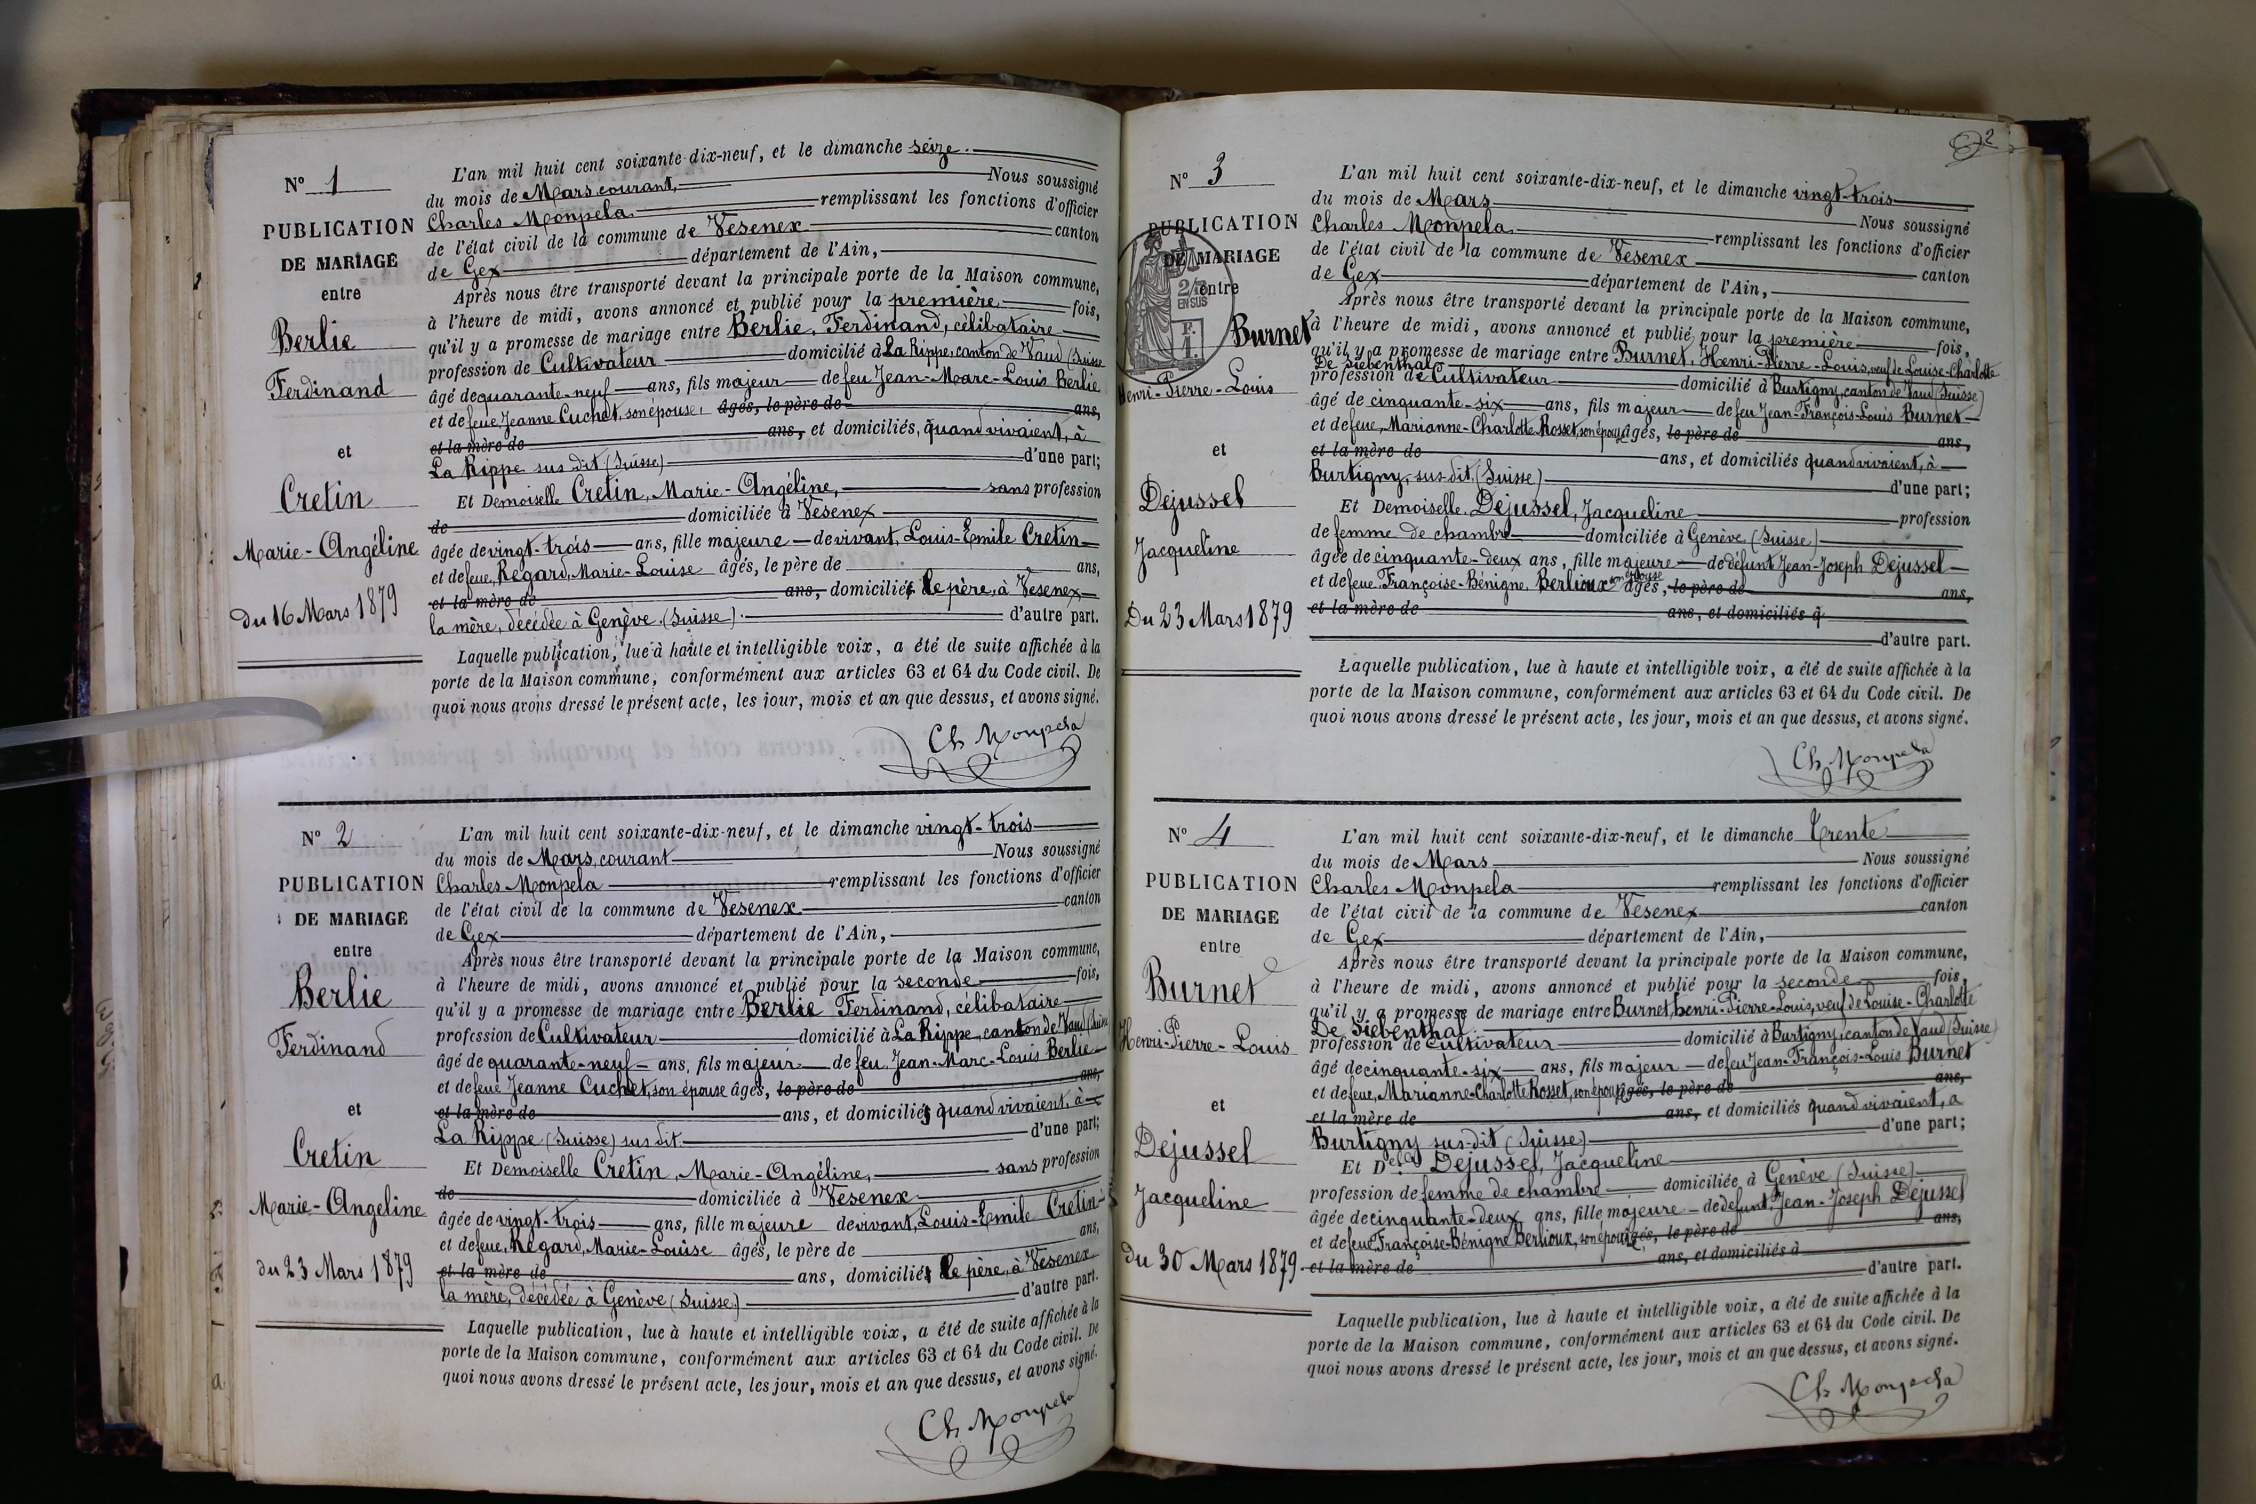 Nº 1
PUBLICATION
DE MARIAGE
entre
Berlie
Ferdinand
et
Cretin
Marie-Angéline
du 16 Mars 1879
L'an mil huit cent soixante-dix-neuf, et le dimanche seize.
du mois de Mars courant, Nous soussigné
Charles Monpela remplissant les fonctions d'officier
de l'état civil de la commune de Vesenex canton
de Gex département de l'Ain,
Après nous être transporté devant la principale porte de la Maison commune,
à l'heure de midi, avons annoncé et publié pour la première fois,
qu'il y a promesse de mariage entre Berlie, Ferdinand, célibataire
profession de Cultivateur domicilié à La Rippe, canton de Vaud (Suisse
âgé de quarante-neuf ans, fils majeur de feu Jean-Marc-Louis Berlie
et de feue, Jeanne Cuchet, son épouse, âgés, le père de ans,
et la mère de ans, et domiciliés, quand vivaient, à
La Rippe sus dit (Suisse) d'une part;
Et Demoiselle Cretin, Marie-Angéline, sans profession
de domiciliée à Vesenex
âgée de vingt-trois ans, fille majeure de vivant, Louis-Emile Cretin
et de feue, Regard, Marie-Louise âgés, le père de ans,
et la mère de ans, domiciliés le père, à Vesenex
la mère, décédée à Genève (Suisse). d'autre part.
Laquelle publication, lue à haute et intelligible voix, a été de suite affichée à la
porte de la Maison commune, conformément aux articles 63 et 64 du Code civil. De
quoi nous avons dressé le présent acte, les jour, mois et an que dessus, et avons signé.
Ch Monpela
Nº 2
PUBLICATION
DE MARIAGE
entre
Berlie
Ferdinand
et
Cretin
Marie-Angeline
du 23 Mars 1879
L'an mil huit cent soixante-dix-neuf, et le dimanche vingt-trois
du mois de Mars, courant Nous soussigné
Charles Monpela remplissant les fonctions d'officier
de l'état civil de la commune de Vesenex canton
de Gex département de l'Ain,
Après nous être transporté devant la principale porte de la Maison commune,
à l'heure de midi, avons annoncé et publié pour la seconde fois,
qu'il y a promesse de mariage entre Berlie Ferdinand, célibataire
profession de Cultivateur domicilié à La Rippe, canton de Vaud (Suisse
âgé de quarante-neuf ans, fils majeur de feu, Jean-Marc-Louis Berlie
et de feue Jeanne Cuchet, son épouse âgés, le père de ans,
et la mère de ans, et domiciliés quand vivaient, à
La Rippe (Suisse) sus dit. d'une part;
Et Demoiselle Cretin, Marie-Angéline, sans profession
de domiciliée à Vesenex
âgée de vingt-trois ans, fille majeure de vivant, Louis-Emile Cretin
et de feue, Regard, Marie-Louise âgés, le père de ans,
et la mère de ans, domiciliés le père, à Vesenex
la mère, décédée à Genève (Suisse) d'autre part.
Laquelle publication, lue à haute et intelligible voix, a été de suite affichée à la
porte de la Maison commune, conformément aux articles 63 et 64 du Code civil. De
quoi nous avons dressé le présent acte, les jour, mois et an que dessus, et avons signé.
Ch Monpela
2
Nº 3
PUBLICATION
DE MARIAGE
entre
2/10
EN SUS
F.
1.
Burnet
Henri-Pierre-Louis
et
Dejussel
Jacqueline
Du 23 Mars 1879
L'an mil huit cent soixante-dix-neuf, et le dimanche vingt-trois
du mois de Mars Nous soussigné
Charles Monpela. remplissant les fonctions d'officier
de l'état civil de la commune de Vesenex canton
de Gex département de l'Ain,
Après nous être transporté devant la principale porte de la Maison commune,
à l'heure de midi, avons annoncé et publié pour la première fois,
qu'il y a promesse de mariage entre Burnet, Henri-Pierre-Louis, veuf de Louise-Charlotte
De Siebenthal
profession de Cultivateur domicilié à Burtigny, canton de Vaud (Suisse)
âgé de cinquante-six ans, fils majeur de feu Jean-François-Louis Burnet
et de feue, Marianne-Charlotte Rosset, son épouse âgés, le père de ans,
et la mère de ans, et domiciliés quand vivaient, à
Burtigny, sus-dit, (Suisse) d'une part;
Et Demoiselle. Dejussel, Jacqueline profession
de femme de chambre domiciliée à Genève (Suisse)
âgée de cinquante-deux ans, fille majeure de défunt Jean-Joseph Dejussel
et de feue Françoise-Bénigne Berlioux son épouse âgés, le père de ans,
et la mère de ans, et domiciliés à
d'autre part.
Laquelle publication, lue à haute et intelligible voix, a été de suite affichée à la
porte de la Maison commune, conformément aux articles 63 et 64 du Code civil. De
quoi nous avons dressé le présent acte, les jour, mois et an que dessus, et avons signé.
Ch Monpela
Nº 4
PUBLICATION
DE MARIAGE
entre
Burnet
Henri-Pierre-Louis
et
Dejussel
Jacqueline
Du 30 Mars 1879.
L'an mil huit cent soixante-dix-neuf, et le dimanche Trente
du mois de Mars Nous soussigné
Charles Monpela remplissant les fonctions d'officier
de l'état civil de la commune de Vesenex canton
de Gex département de l'Ain,
Après nous être transporté devant la principale porte de la Maison commune,
à l'heure de midi, avons annoncé et publié pour la seconde fois,
qu'il y a promesse de mariage entre Burnet, henri-Pierre-Louis, veuf de Louise-Charlotte
De Siebenthal.
profession de Cultivateur domicilié à Burtigny, canton de Vaud (Suisse)
âgé de cinquante-six ans, fils majeur de feu Jean-François-Louis Burnet
et de feue, Marianne-Charlotte Rosset, son épouse âgés, le père de ans,
et la mère de ans, et domiciliés quand vivaient, a
Burtigny sus-dit (Suisse) d'une part;
Et Delle Dejussel, Jacqueline
profession de femme de chambre domiciliée à Genève (Suisse)
âgée de cinquante-deux ans, fille majeure de defunt, Jean-Joseph Dejussel
et de feue Françoise-Bénigne Berlioux, son épouse âgés, le père de ans,
et la mère de ans, et domiciliés à
d'autre part.
Laquelle publication, lue à haute et intelligible voix, a été de suite affichée à la
porte de la Maison commune, conformément aux articles 63 et 64 du Code civil. De
quoi nous avons dressé le présent acte, les jour, mois et an que dessus, et avons signé.
Ch Monpela